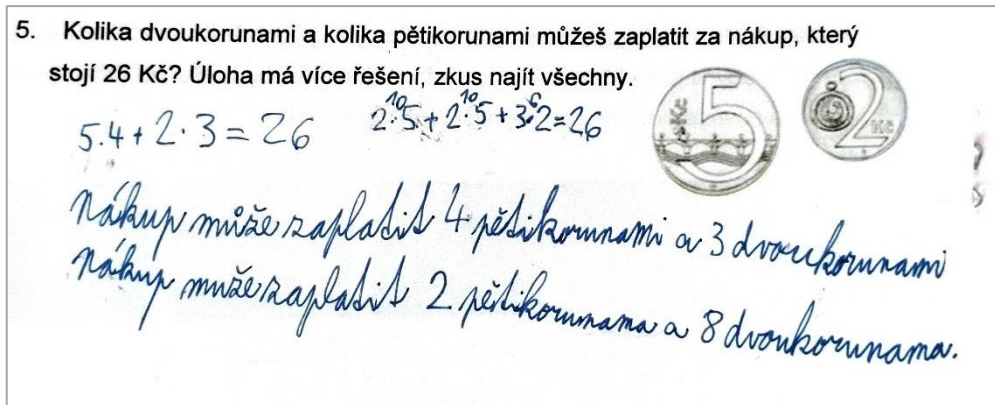 5. Kolika dvoukorunami a kolika pětikorunami můžeš zaplatit za nákup, který
stojí 26 Kč? Úloha má více řešení, zkus najít všechny.
5 Kč
2 Kč
10 10 6
5.4 + 2·3 = 26 2·5 + 2·5 + 3·2 = 26
Nákup může zaplatit 4 pětikorunami a 3 dvoukorunami
Nákup může zaplatit 2 pětikorunama a 8 dvoukorunama.